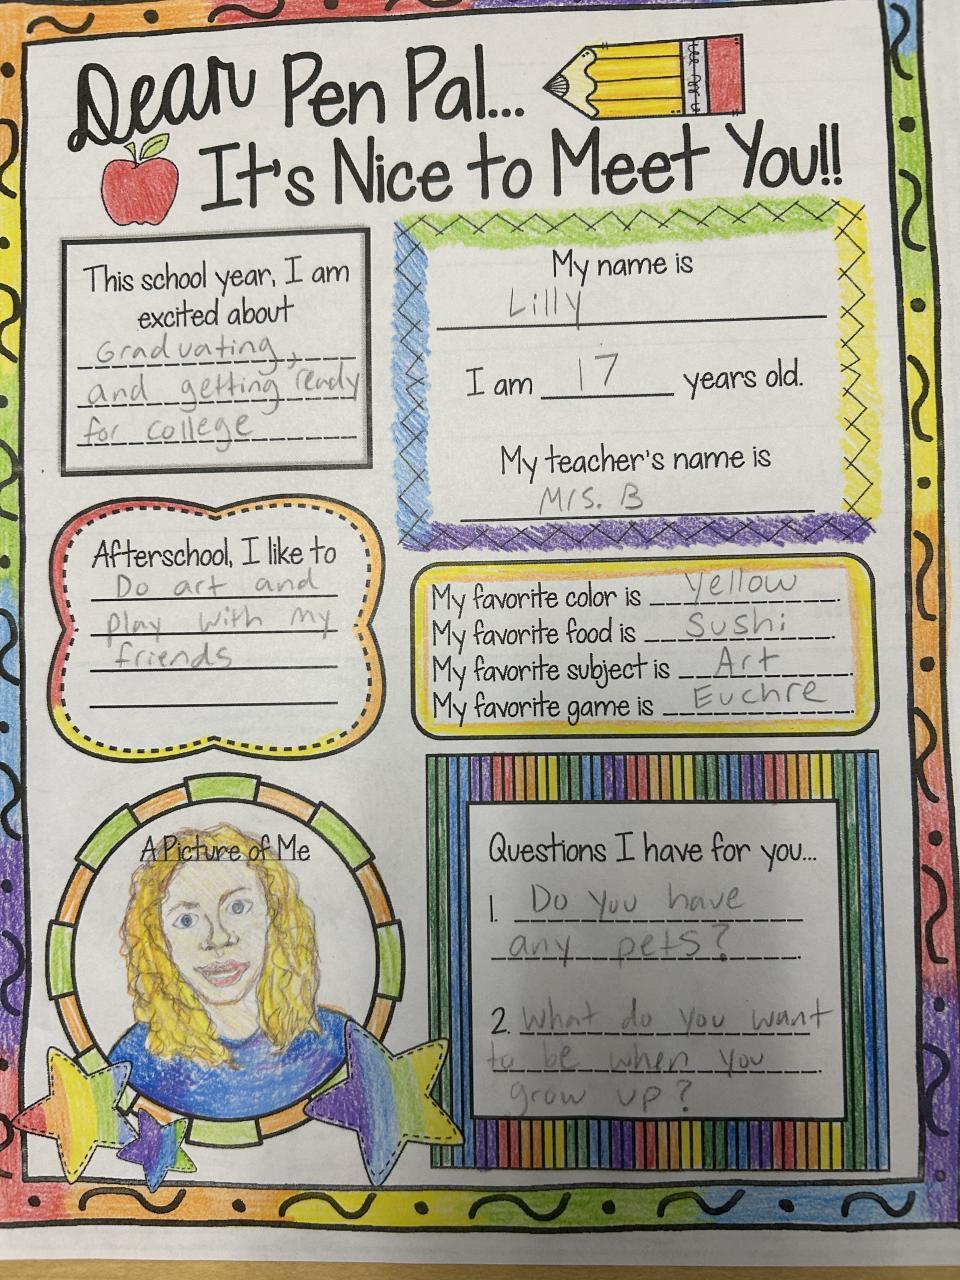 Dear Pen Pal...
It's Nice to Meet You!!
This school year, I am
excited about
Graduating,
and getting ready
for college
My name is
Lilly
I am 17 years old.
My teacher's name is
Mrs. B
Afterschool, I like to
Do art and
play with my
friends
My favorite color is Yellow.
My favorite food is Sushi.
My favorite subject is Art.
My favorite game is Euchre.
A Picture of Me
Questions I have for you...
1. Do you have
any pets?.
2. What do you want
to be when you.
grow up?